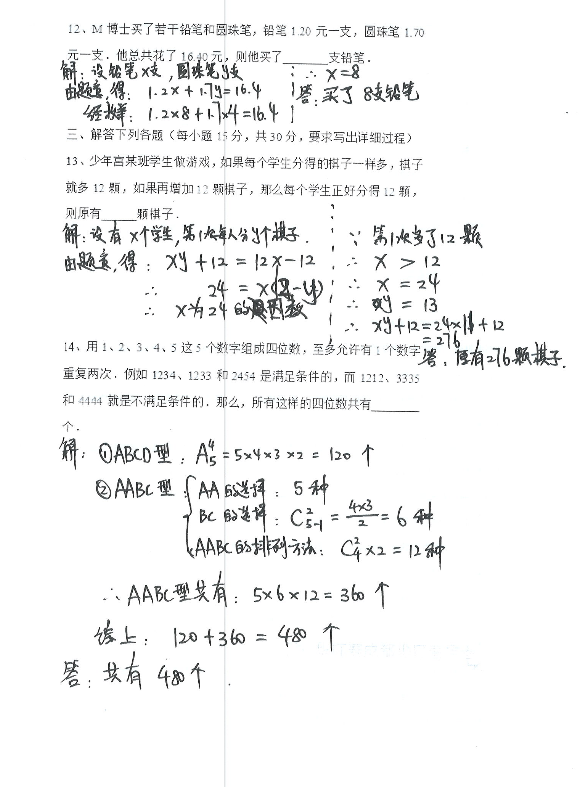 12、M 博士买了若干铅笔和圆珠笔，铅笔 1.20 元一支，圆珠笔 1.70
元一支．他总共花了 16.40 元，则他买了______支铅笔．
解：设铅笔x支，圆珠笔y支
由题意，得：1.2x+1.7y=16.4
经検样：1.2×8+1.7×4=16.4
∴ x=8
答：买了 8支铅笔
三、解答下列各题（每小题 15 分，共 30 分，要求写出详细过程）
13、少年宫某班学生做游戏，如果每个学生分得的棋子一样多，棋子
就多 12 颗，如果再增加 12 颗棋子，那么每个学生正好分得 12 颗，
则原有_____颗棋子．
解：设有x个学生，第1次每人分y个棋子．
由题意，得：xy+12=12x-12
∴ 24=x(12-y)
∴ x为24的因数
∵ 第1次多了12颗
∴ x > 12
∴ x = 24
∴ y = 13
∴ xy+12=24×11+12
=276
答：原有276颗棋子．
14、用 1、2、3、4、5 这 5 个数字组成四位数，至多允许有 1 个数字
重复两次．例如 1234、1233 和 2454 是满足条件的，而 1212、3335
和 4444 就是不满足条件的．那么，所有这样的四位数共有_______
个．
解：①ABCD型：A₅⁴=5×4×3×2=120个
②AABC型：AA的选择：5种
BC的选择：C²₅₋₁=4×3/2=6种
AABC的排列方法：C₄²×2=12种
∴AABC型共有：5×6×12=360个
综上：120+360=480个
答：共有480个．